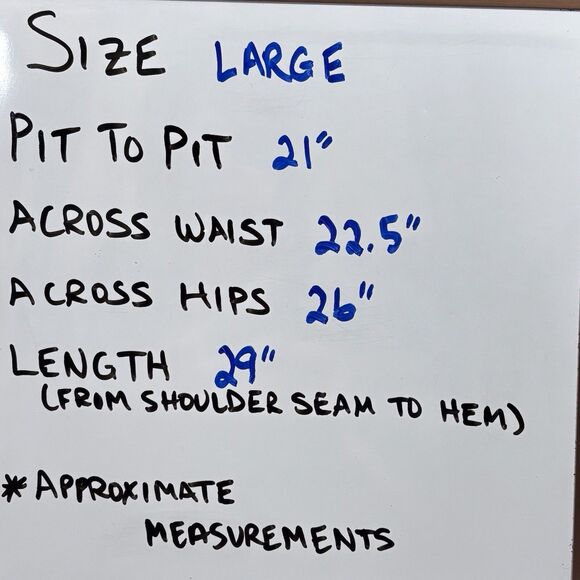 SIZE LARGE
PIT TO PIT 21"
ACROSS WAIST 22.5"
ACROSS HIPS 26"
LENGTH 29"
(FROM SHOULDER SEAM TO HEM)
*APPROXIMATE
MEASUREMENTS